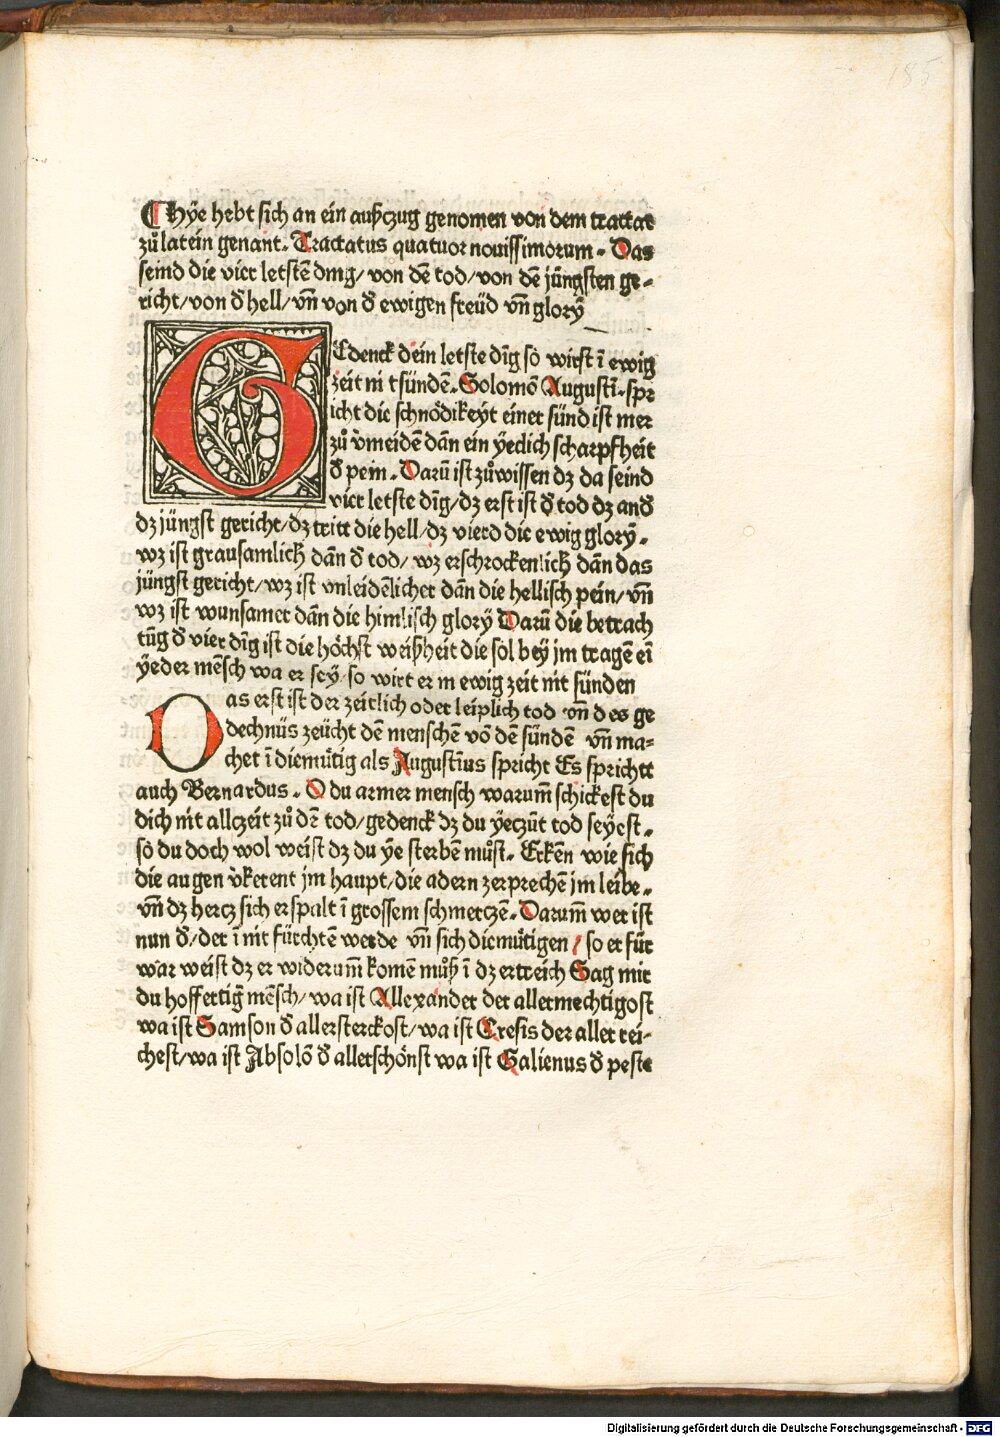 185
¶ Hÿe hebt sich an ein außczug genomen von dem tractat
zů latein genant. Tractatus quatuor nouissimorum. Das
seind die vier letstē ding/ von dē tod/ von dē jüngsten ge⸗
richt/ von d̕ hell/ vn̄ von d̕ ewigen freüd vn̄ glorÿ
GEdenck dein letste dīg so wirst ī ewig
zeit nit sünden. Salomon Augustī. spr
icht die schnödikeyt einer sünd ist mer
zů v̕meidē dān ein ÿedich scharpfheit
d̕ pein. Darū ist zůwissen dz da seind
vier letste dīg/ dz erst ist d̕ tod dz and̕
dz jüngst gericht/ dz tritt die hell/ dz vierd die ewig glorÿ.
wz ist grausamlich dān d̕ tod/ wz erschrockenlich dān das
jüngst gericht/ wz ist vnleidēlicher dān die hellisch pein/ vn̄
wz ist wunsamer dān die himlisch glorÿ Darū die betrach
tūg d̕ vier dīg ist die höchst weißheit die sol bey jm tragē eī
ÿeder mēsch wa er seÿ so wirt er in ewig zeit nit sünden
Das erst ist der zeitlich oder leiplich tod vn̄ des ge
dechnüs zeücht dē menschē vō dē sündē vn̄ ma⸗
chet ī diemůtig als Augustīus spricht Es spricht
auch Bernardus. O du armer mensch warum̄ schickest du
dich nit allczeit zů dē tod/ gedenck dz du ÿeczūt tod seÿest.
so du doch wol weist dz du ÿe sterbē můst. Erkēn wie sich
die augen v̕kerent jm haupt/ die adern zerprechē jm leibe.
vn̄ dz hercz sich erspalt ī grossem schmerczē. Darum̄ wer ist
nun d̕/ der ī nit fürchtē werde vn̄ sich diemůtigen/ so er für
war weist dz er widerum̄ komē můß ī dz ertreich Sag mir
du hoffertig mēsch/ wa ist Allexander der allermechtigost
wa ist Samson d̕ allersterckost/ wa ist Cresis der aller rei⸗
chest/ wa ist Absolō d̕ allerschönst wa ist Galienus d̕ peste
Digitalisierung gefördert durch die Deutsche Forschungsgemeinschaft - DFG